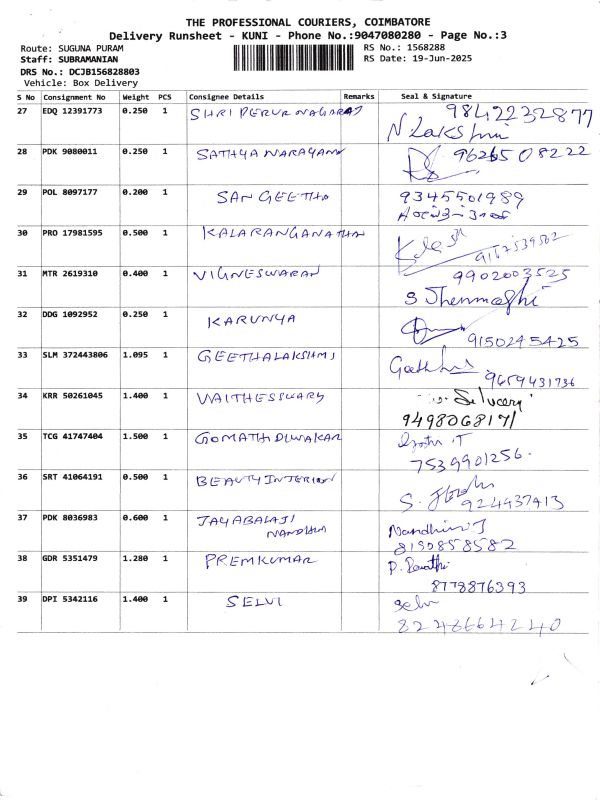 THE PROFESSIONAL COURIERS, COIMBATORE
Delivery Runsheet - KUNI - Phone No.:9047080280 - Page No.:3
Route: SUGUNA PURAM RS No.: 1568288
Staff: SUBRAMANIAN RS Date: 19-Jun-2025
DRS No.: DCJB156828803
Vehicle: Box Delivery
S No Consignment No Weight PCS Consignee Details Remarks Seal & Signature
27 EDQ 12391773 0.250 1 SHRI PERUR NAGARAJ 9842232877
N Lakshmi
28 PDK 9080011 0.250 1 SATHYA NARAYANN
29 POL 8097177 0.200 1 SANGEETHA 9345501989
30 PRO 17981595 0.500 1 KALARANGANATHAN
31 MTR 2619310 0.400 1 VIGNESWARAN 9902003525
S Thenmozhi
32 DDG 1092952 0.250 1 KARUNYA
9150245425
33 SLM 372443806 1.095 1 GEETHALAKSHMI
9659431736
34 KRR 50261045 1.400 1 VAITHESSWARY
35 TCG 41747404 1.500 1 GOMATHI DIWAKAR
7539901256.
36 SRT 41064191 0.500 1 BEAUTY INTERIOR
37 PDK 8036983 0.600 1 JAYABALAJI Nandhini J
NANDHINI 8190858582
38 GDR 5351479 1.280 1 PREMKUMAR P. Revathi
8778876393
39 DPI 5342116 1.400 1 SELVI Selvi
8248664240